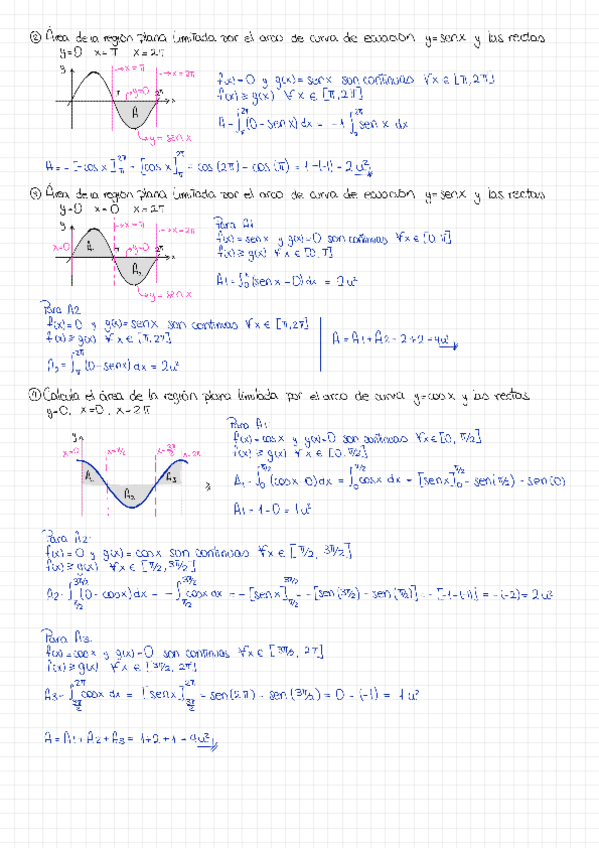 ② Área de la región plana limitada por el arco de curva de ecuación y=senx y las rectas
y=0 x=π x=2π
y →x=π →x=2π
f(x)=0 y g(x)=senx son continuas ∀x∈[π,2π]
f(x)≥g(x) ∀x∈[π,2π]
π y=0 2π x
A
A=∫π^2π (0-senx)dx = -1∫π^2π senx dx
↳y=senx
A=-[-cosx]π^2π = [cosx]π^2π = cos(2π)-cos(π) = 1-(-1) = 2u²
Área de la región plana limitada por el arco de curva de ecuación y=senx y las rectas
y=0 x=0 x=2π
y →x=π →x=2π
Para A1
f(x)=senx y g(x)=0 son continuas ∀x∈[0,π]
x=0 A1 π y=0 2π x
f(x)≥g(x) ∀x∈[0,π]
A2
A1=∫0^π (senx-0)dx = 2u²
↳y=senx
Para A2
f(x)=0 y g(x)=senx son continuas ∀x∈[π,2π]
f(x)≥g(x) ∀x∈[π,2π]
A=A1+A2=2+2=4u²
A2=∫π^2π (0-senx)dx = 2u²
Calcula el área de la región plana limitada por el arco de curva y=cosx y las rectas
y=0, x=0, x=2π
Para A1
y
f(x)=cosx y g(x)=0 son continuas ∀x∈[0,π/2]
x=0 x=π/2 x=3π/2 x=2π
f(x)≥g(x) ∀x∈[0,π/2]
A1 A2 A3
A1=∫0^π/2 (cosx-0)dx = ∫0^π/2 cosx dx = [senx]0^π/2 = sen(π/2)-sen(0)
A1=1-0=1u²
Para A2:
f(x)=0 y g(x)=cosx son continuas ∀x∈[π/2, 3π/2]
f(x)≥g(x) ∀x∈[π/2, 3π/2]
A2=∫π/2^3π/2 (0-cosx)dx = -∫π/2^3π/2 cosx dx = -[senx]π/2^3π/2 = -[sen(3π/2)-sen(π/2)] = -[-1-(-1)] = -(-2) = 2u²
Para A3.
f(x)=cosx y g(x)=0 son continuas ∀x∈[3π/2, 2π]
f(x)≥g(x) ∀x∈[3π/2, 2π]
A3=∫3π/2^2π cosx dx = [senx]3π/2^2π = sen(2π)-sen(3π/2) = 0-(-1) = 1u²
A=A1+A2+A3=1+2+1=4u²